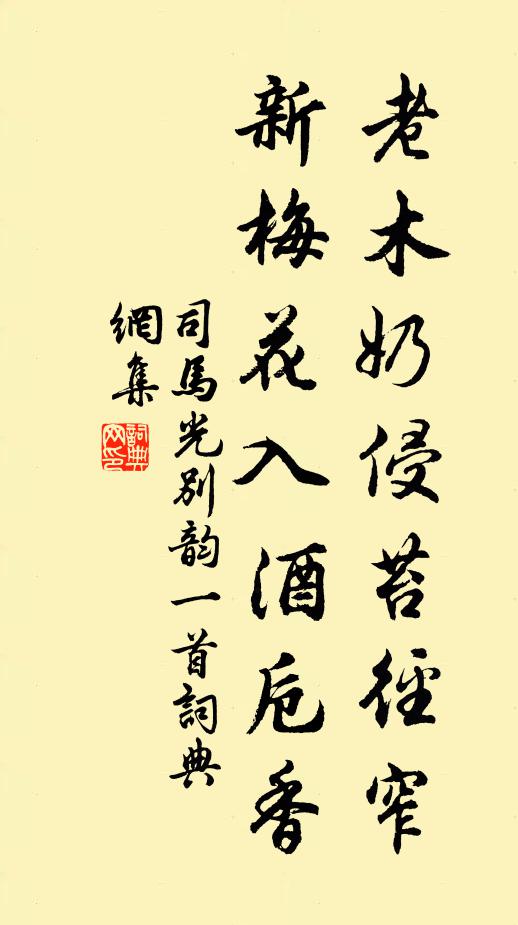 老木奶侵苔径窄
新梅花入酒卮香
司馬光别韵一首詞典
網集
詞典網印